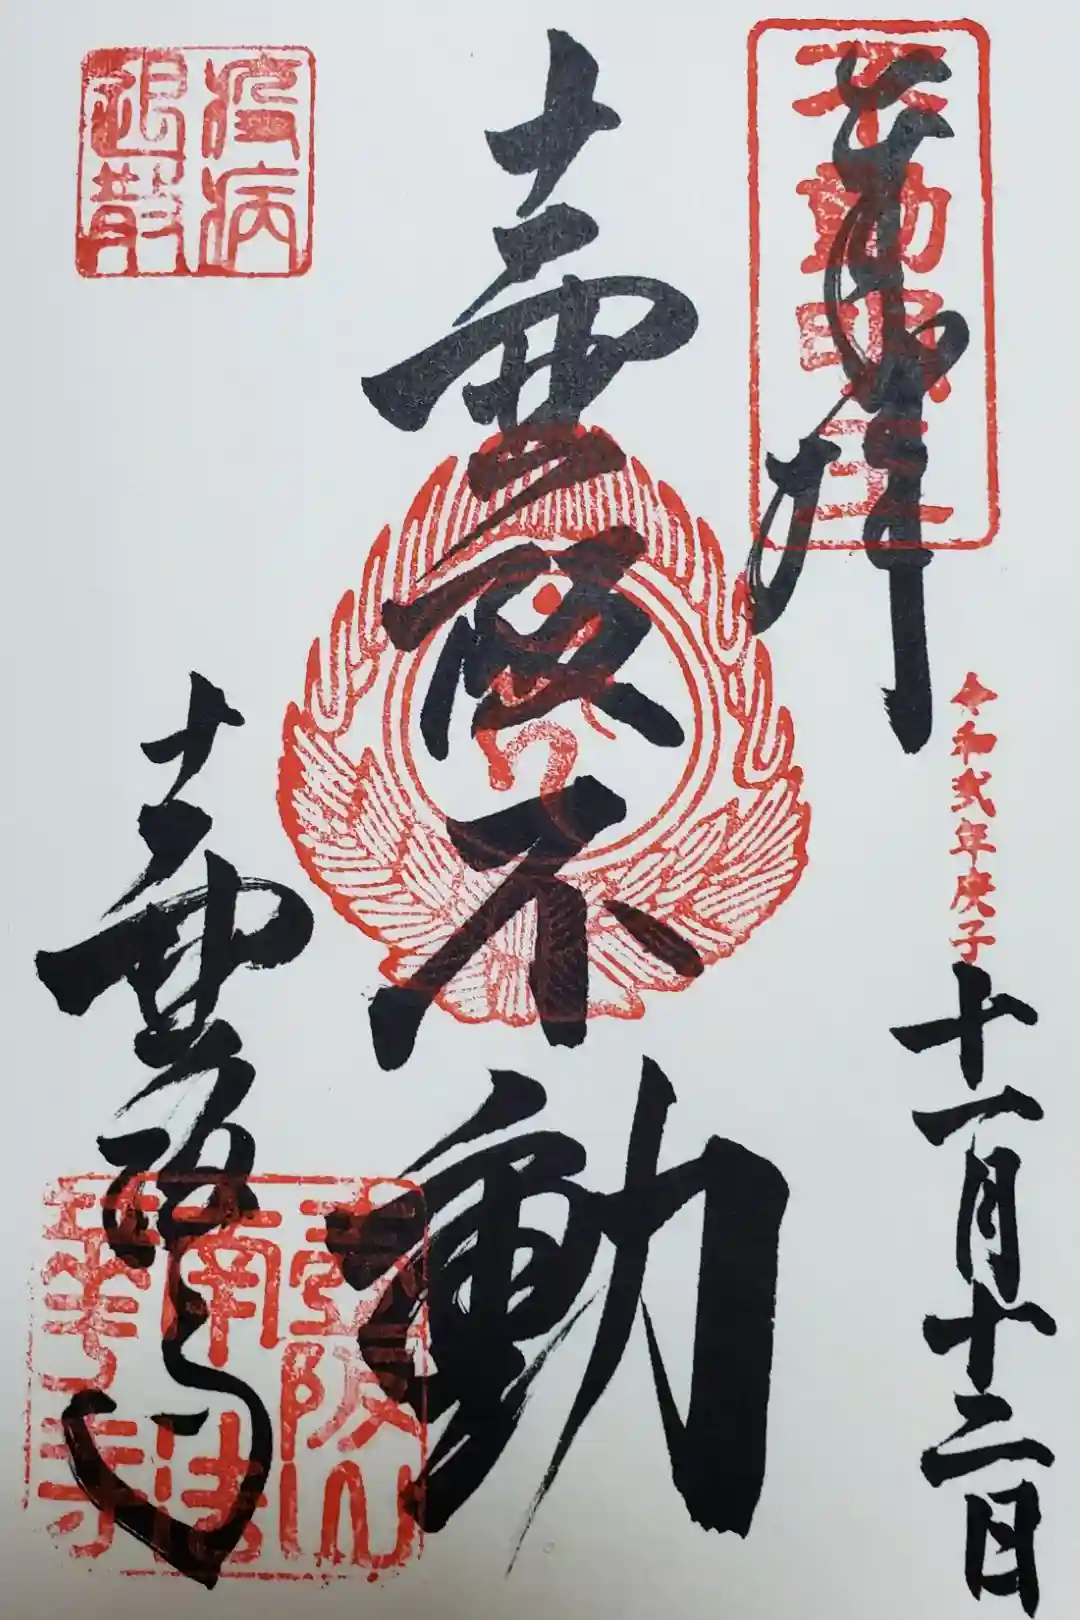 奉拝
不動明王
令和弐年庚子
十一月十二日
壷阪不動
疫病
退散
壷阪寺
壷阪山
南法
華寺